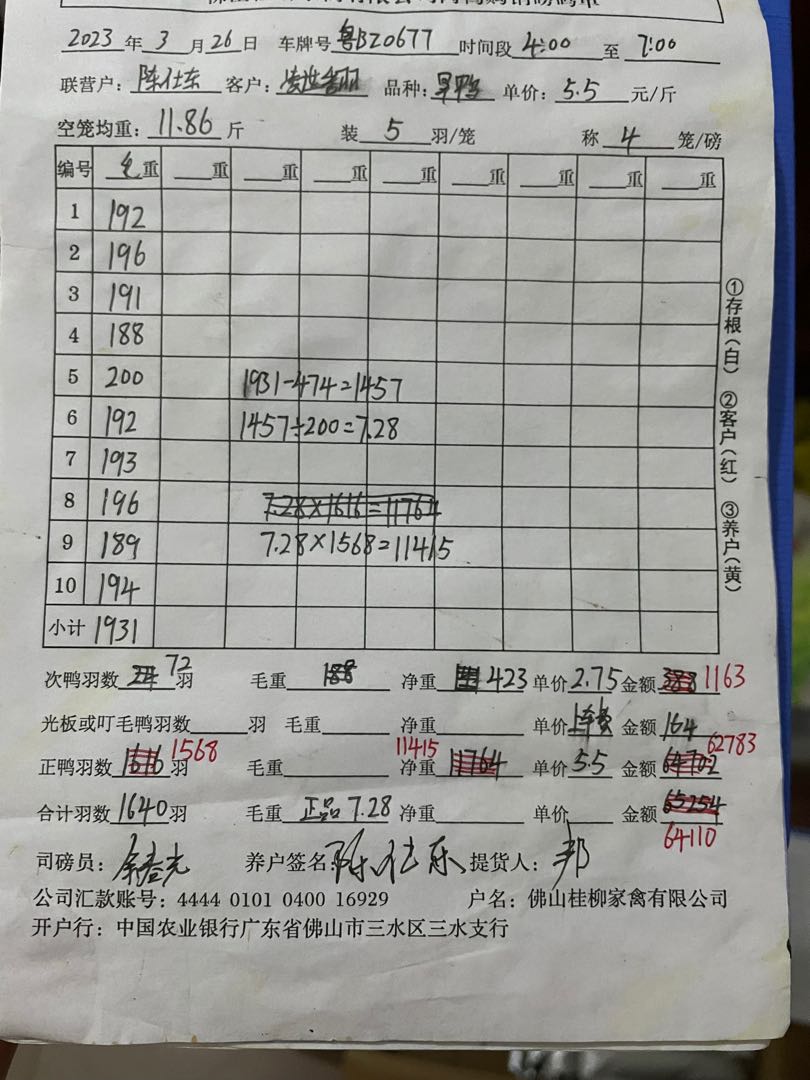 2023 年 3 月 26 日 车牌号 粤BZ0677 时间段 4:00 至 7:00
联营户: 陈仕东 客户: 品种: 旱鸭 单价: 5.5 元/斤
空笼均重: 11.86 斤 装 5 羽/笼 称 4 笼/磅
编号 毛重 重 重 重 重 重 重 重 重
1 192
2 196
3 191
4 188
5 200 1931-474=1457
6 192 1457÷200=7.28
7 193
8 196 7.28×1616=11764
9 189 7.28×1568=11415
10 194
小计 1931
①存根(白) ②客户(红) ③养户(黄)
次鸭羽数 72 羽 毛重 188 净重 423 单价 2.75 金额 388 1163
光板或叮毛鸭羽数 羽 毛重 净重 单价 车费 金额 164
正鸭羽数 1616 1568 羽 毛重 净重 11415 11764 单价 5.5 金额 64702 62783
合计羽数 1640 羽 毛重 正品 7.28 净重 单价 金额 65254 64110
司磅员: 养户签名: 陈仕东 提货人: 邦
公司汇款账号: 4444 0101 0400 16929 户名: 佛山桂柳家禽有限公司
开户行: 中国农业银行广东省佛山市三水区三水支行